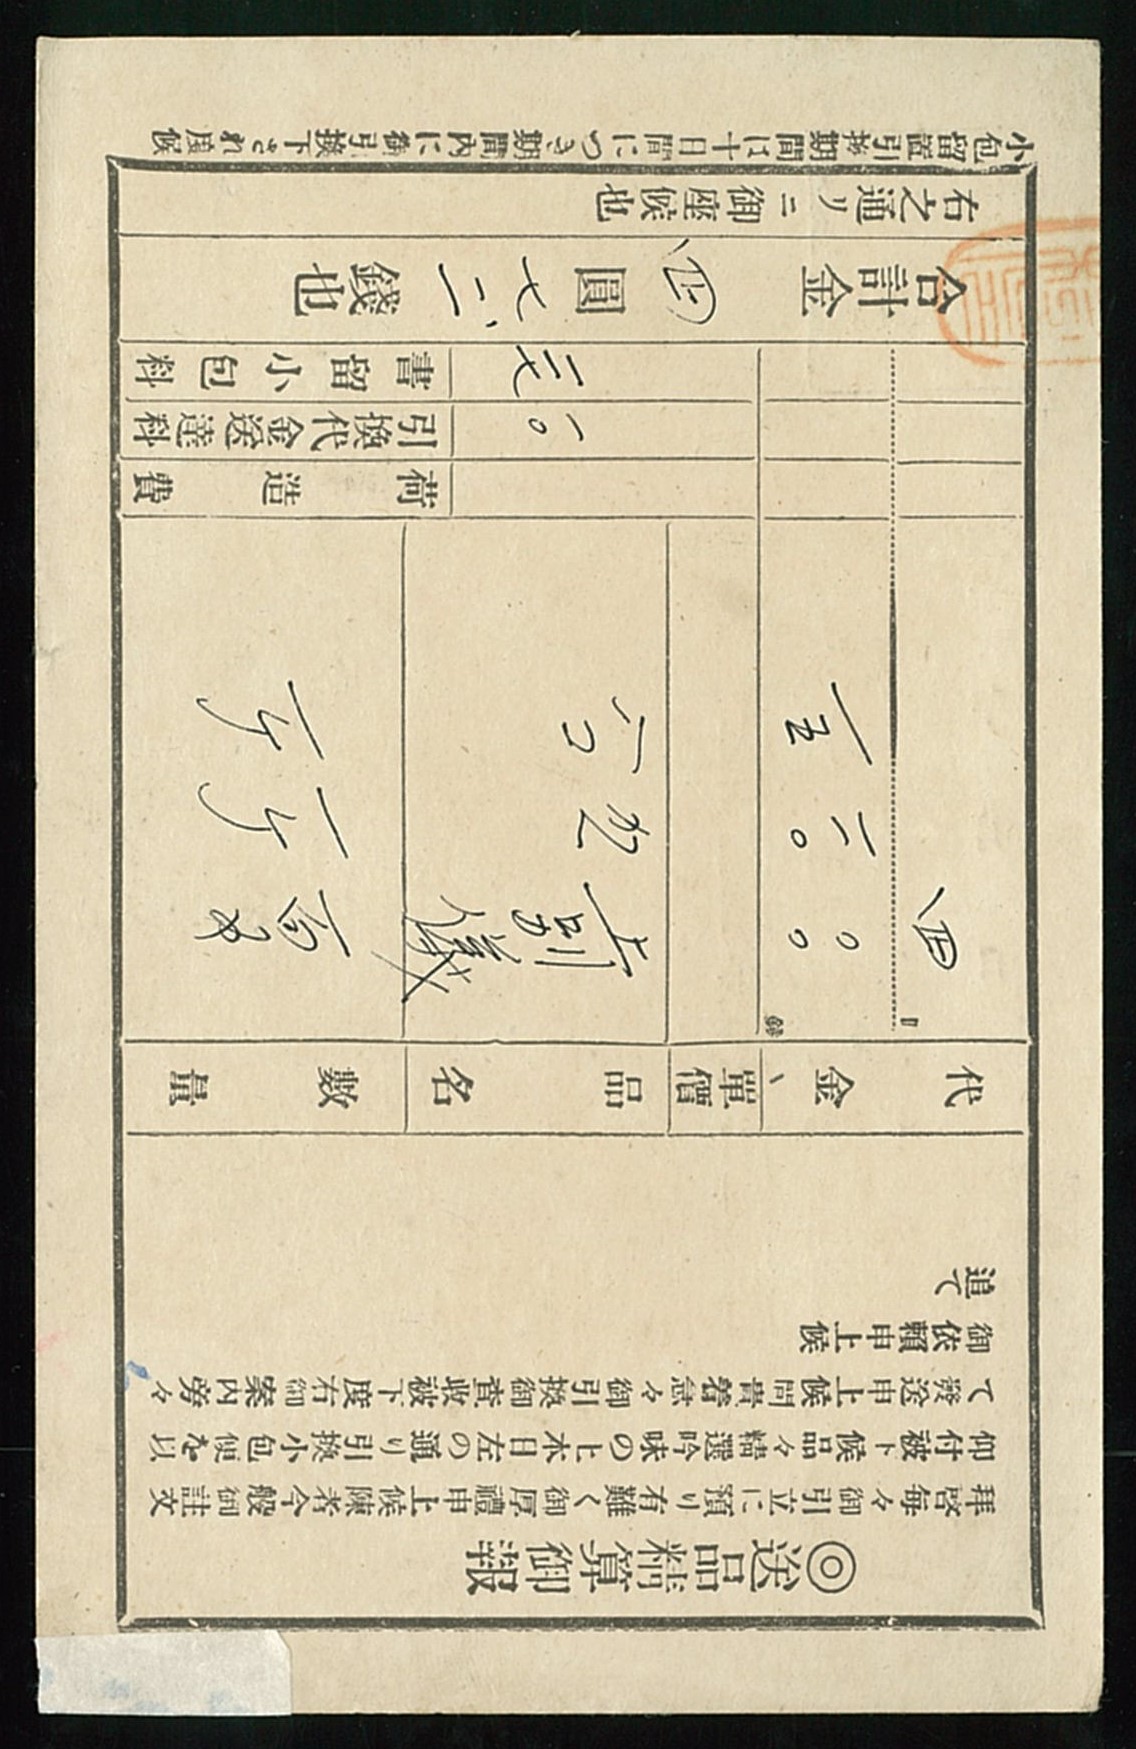 ◎送品精算御報
拜啓毎々御引立に預り有難く御厚禮申上候陳者今般御註文
仰付被下候品々精選吟味の上本日左の通り引換小包便を以
て發送申上候間貴着急々御引換御査收被下度右御案内旁々
御依賴申上候
追て
代金 單價 品名 數量
圓 錢
四、〇〇 上別儀 百匁
二〇 かん 一ケ
一五 一ケ
荷造費
引換代金送達料 一〇
書留小包料 二七
合計金四圓七二錢也
右之通リニ御座候也
小包留置引換期間は十日間につき期間內に御引換下され度候